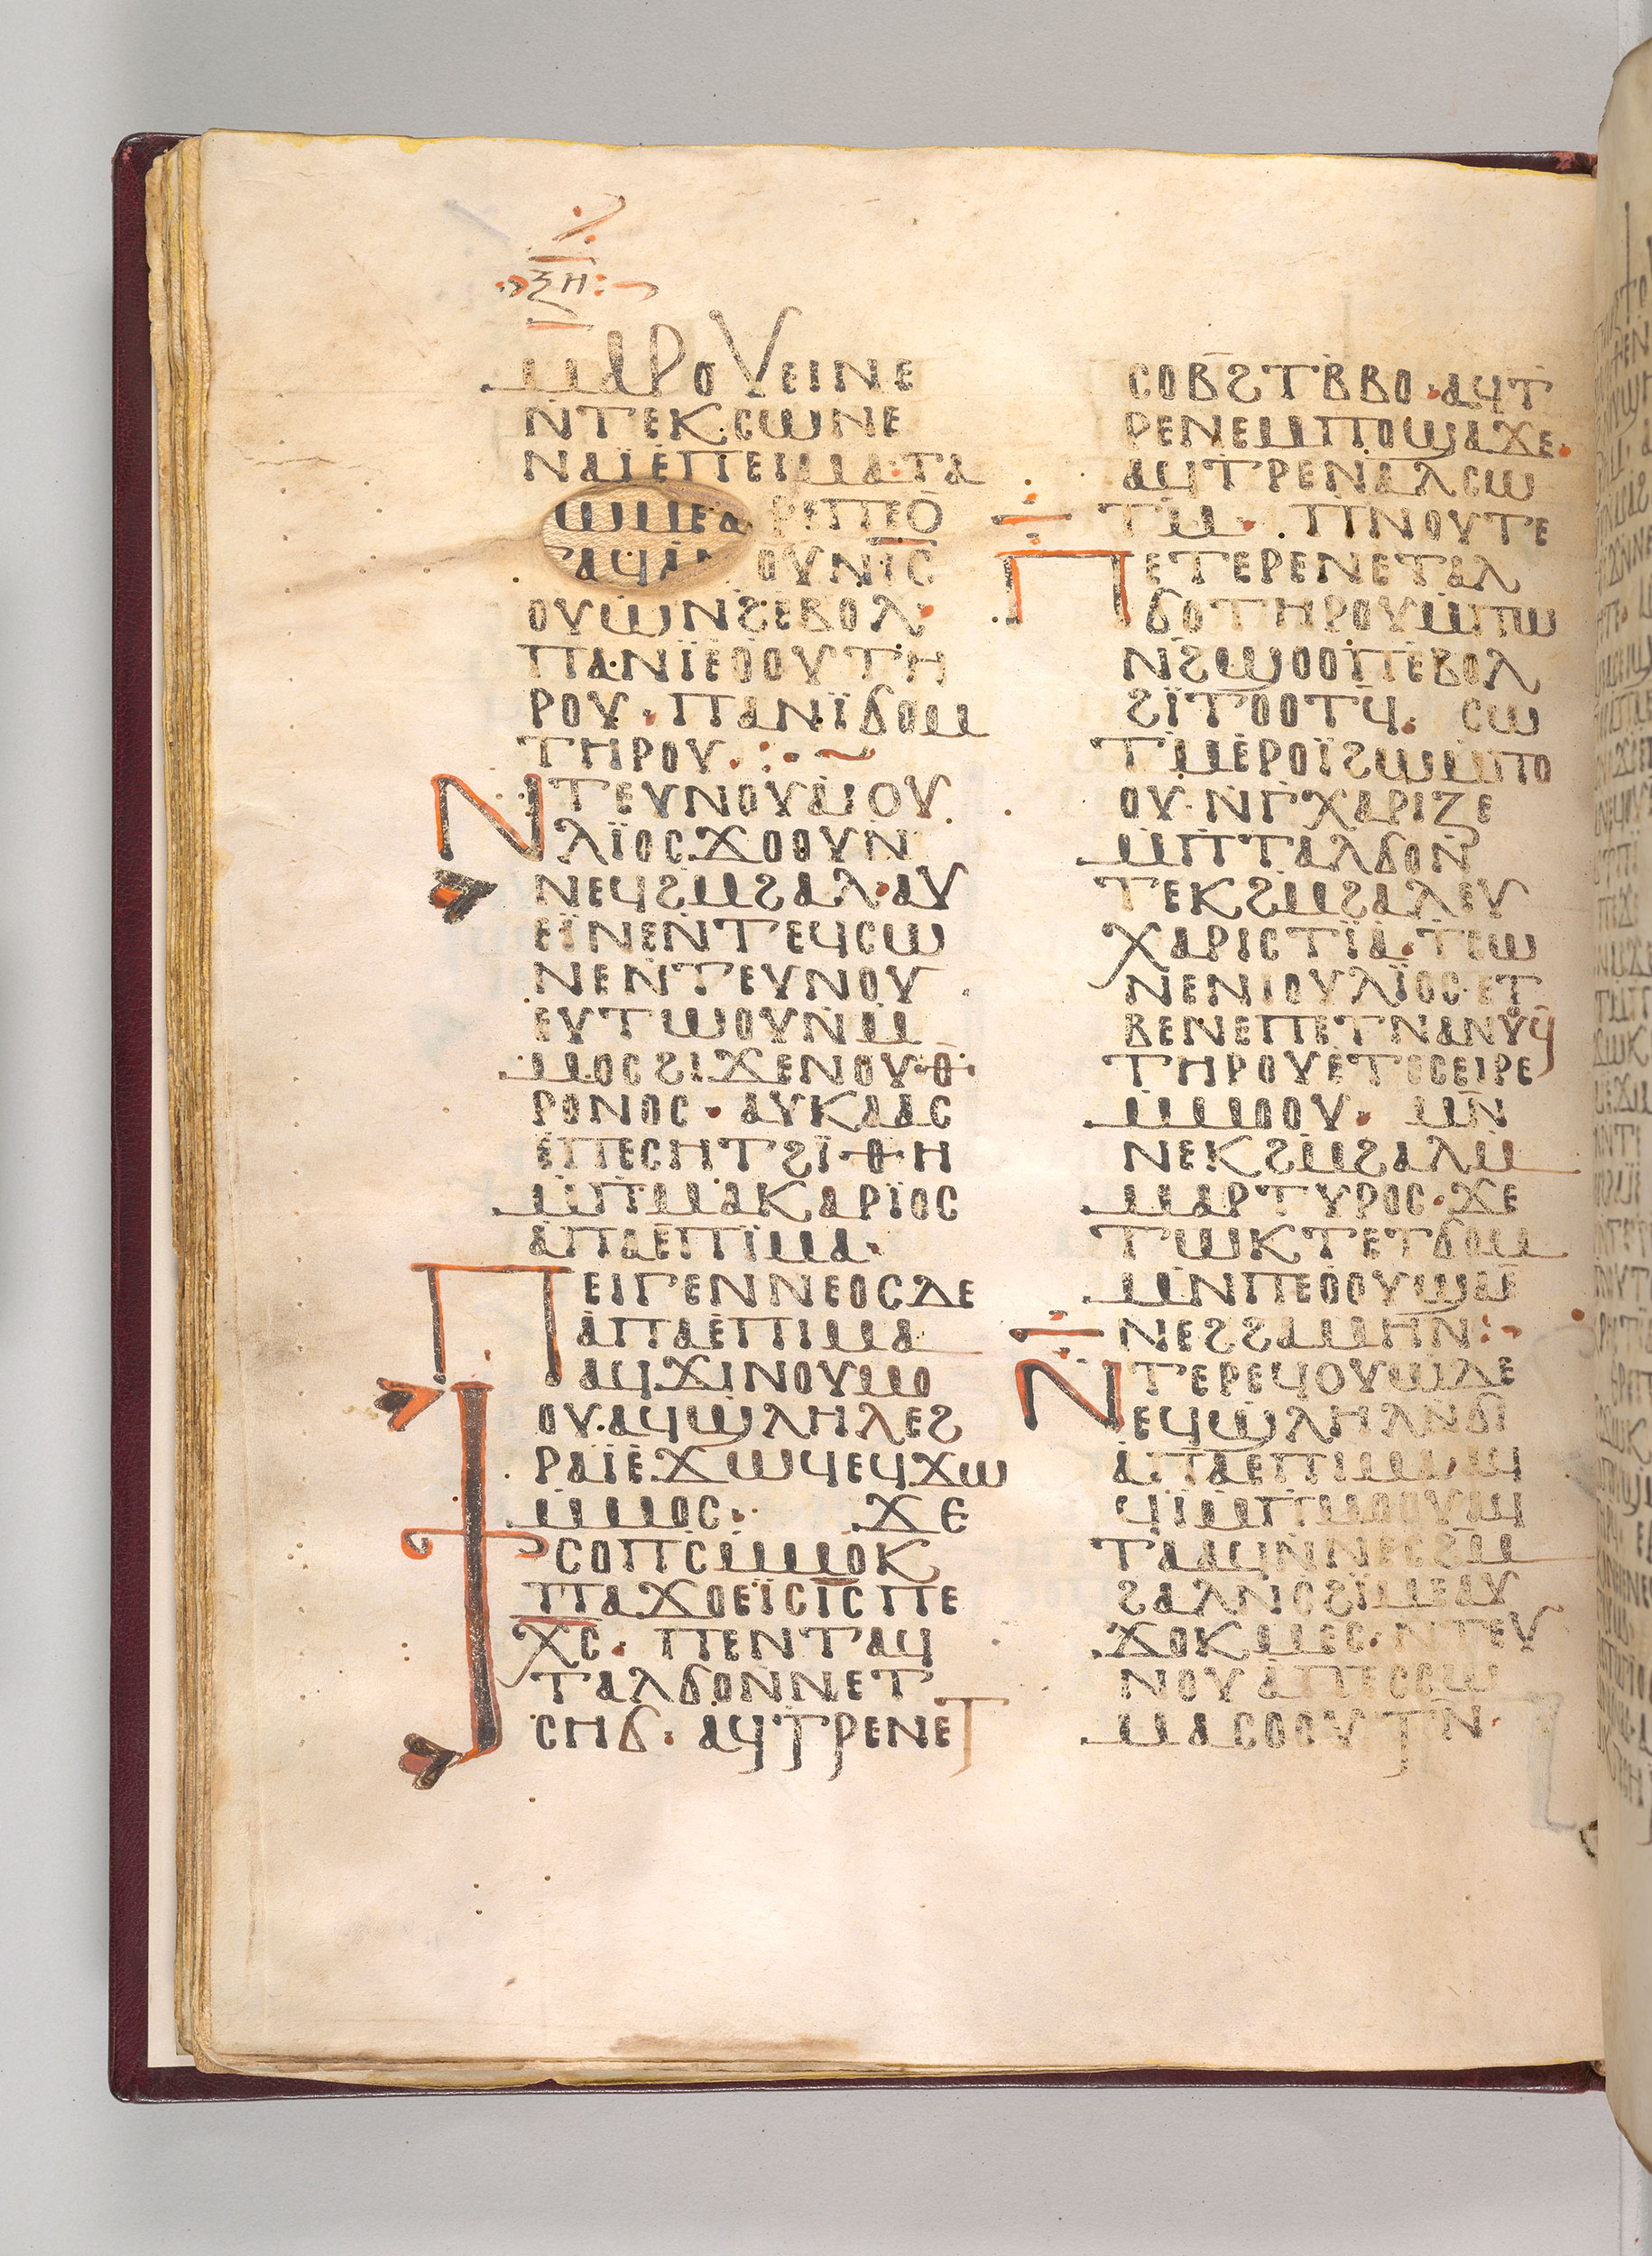 ⲝⲏ
ⲙⲁⲣⲟⲩⲉⲓⲛⲉ
ⲛ̇ⲧⲉⲕⲥⲱⲛⲉ
ⲛⲁⲓ̈ⲉ̇ⲡⲉⲓⲙⲁ·ⲧⲁ
ⲣⲉⲡⲉⲟ̅
ⲟⲩⲛ̇ⲓ̅ⲥ̅
ⲟⲩⲱⲛϩⲉ̇ⲃⲟⲗ·
ⲡⲁ·ⲛⲓ̈ⲉⲟⲟⲩⲧⲏ
ⲣⲟⲩ·ⲡⲁⲛⲓ̈ϭⲟⲙ
ⲧⲏⲣⲟⲩ·:·~
ⲛⲧⲉⲩⲛⲟⲩⲁⲓ̈ⲟⲩ
ⲗⲓ̈ⲟⲥϫⲟⲟⲩⲛ̇
ⲛⲉϥϩⲙ̇ϩⲁⲗ·ⲁⲩ
ⲉⲓ̈ⲛⲉⲛ̇ⲧⲉϥⲥⲱ
ⲛⲉⲛ̇ⲧⲉⲩⲛⲟⲩ
ⲉⲩⲧⲱⲟⲩⲛⲙ̇
ⲙⲟⲥϩⲓϫⲉⲛⲟⲩⲑ
ⲣⲟⲛⲟⲥ·ⲁⲩⲕⲁⲁⲥ
ⲉ̇ⲡⲉⲥⲏⲧϩⲓ̈ⲑⲏ
ⲙ̇ⲡⲙⲁⲕⲁⲣⲓ̈ⲟⲥ
ⲁ̇ⲡⲁⲉⲡⲓ̈ⲙⲁ·
ⲡⲉⲓⲅⲉⲛⲛⲉⲟⲥⲇⲉ
ⲁ̇ⲡⲁⲉ̇ⲡⲓⲙⲁ
ⲁϥϫⲓⲛⲟⲩⲙⲟ
ⲟⲩ·ⲁϥϣⲗⲏⲗⲉϩ
ⲣⲁⲓ̈ⲉ̇ϫⲱϥⲉϥϫⲱ
ⲙ̇ⲙⲟⲥ· ϫⲉ
ϯⲥⲟⲡⲥⲙ̇ⲙⲟⲕ
ⲡⲁϫⲟⲉⲓ̈ⲥⲓ̅ⲥ̅ⲡⲉ
ⲭ̅ⲥ̅·ⲡⲉⲛⲧⲁϥ
ⲧⲁⲗϭⲟⲛⲛⲉⲧ
ⲥⲏϭ·ⲁϥⲧⲣⲉⲛⲉⲧ
ⲥⲟⲃϩⲧⲃ̇ⲃⲟ·ⲁϥⲧ
ⲣⲉⲛⲉⲙⲡⲟϣⲁϫⲉ·
ⲁϥⲧⲣⲉⲛⲁⲗⲥⲱ
ⲧⲙ̇·ⲡⲛⲟⲩⲧⲉ
ⲡⲉⲧⲉⲣⲉⲛⲉⲧⲁⲗ
ϭⲟⲧⲏⲣⲟⲩⲙ̇ⲡⲱ
ⲛϩϣⲟⲟⲡⲉ̇ⲃⲟⲗ
ϩⲓ̈ⲧⲟⲟⲧϥ· ⲥⲱ
ⲧⲙ̇ⲉ̇ⲣⲟⲓ̈ϩⲱⲙ̇ⲡⲟ
ⲟⲩ·ⲛ̇ⲅⲭⲁⲣⲓⲍⲉ
ⲙ̇ⲡⲧⲁⲗϭⲟⲛ̇
ⲧⲉⲕϩⲙ̇ϩⲁⲗⲉⲩ
ⲭⲁⲣⲓⲥⲧⲓ̈ⲁ·ⲧⲥⲱ
ⲛⲉⲛⲓⲟⲩⲗⲓ̈ⲟⲥ·ⲉⲧ
ⲃⲉⲛⲉⲡⲉⲧⲛⲁⲛⲩϥ
ⲧⲏⲣⲟⲩⲉ̇ⲧⲉⲥⲉⲓⲣⲉ
ⲙ̇ⲙⲟⲟⲩ·ⲙⲛ̅
ⲛⲉⲕϩⲙ̇ϩⲁⲗⲙ̇
ⲙⲁⲣⲧⲩⲣⲟⲥ·ϫⲉ
ⲧⲱⲕⲧⲉⲧϭⲟⲙ
ⲙⲛⲡⲉⲟⲟⲩϣⲁⲉ
ⲛⲉϩϩⲁⲙⲏⲛ:·
ⲛⲧⲉⲣⲉϥⲟⲩⲱⲇⲉ
ⲉϥϣⲗⲏⲗⲛ̇ϭⲓ
ⲁ̇ⲡⲁⲉⲡⲓⲙⲁ·ⲁϥ
ϥⲓ̈ⲙ̇ⲡⲙⲟⲟⲩⲁϥ
ⲧⲁⲁϥⲛ̇ⲛⲉⲥϩⲙ̇
ϩⲁⲗⲛ̇ⲥϩⲓ̈ⲙⲉⲁⲩ
ϫⲟⲕⲙⲉⲥ·ⲛⲧⲉⲩ
ⲛⲟⲩⲁ̇ⲡⲉⲥⲥⲱ
ⲙⲁⲥⲟⲟⲩⲧⲛ̅·